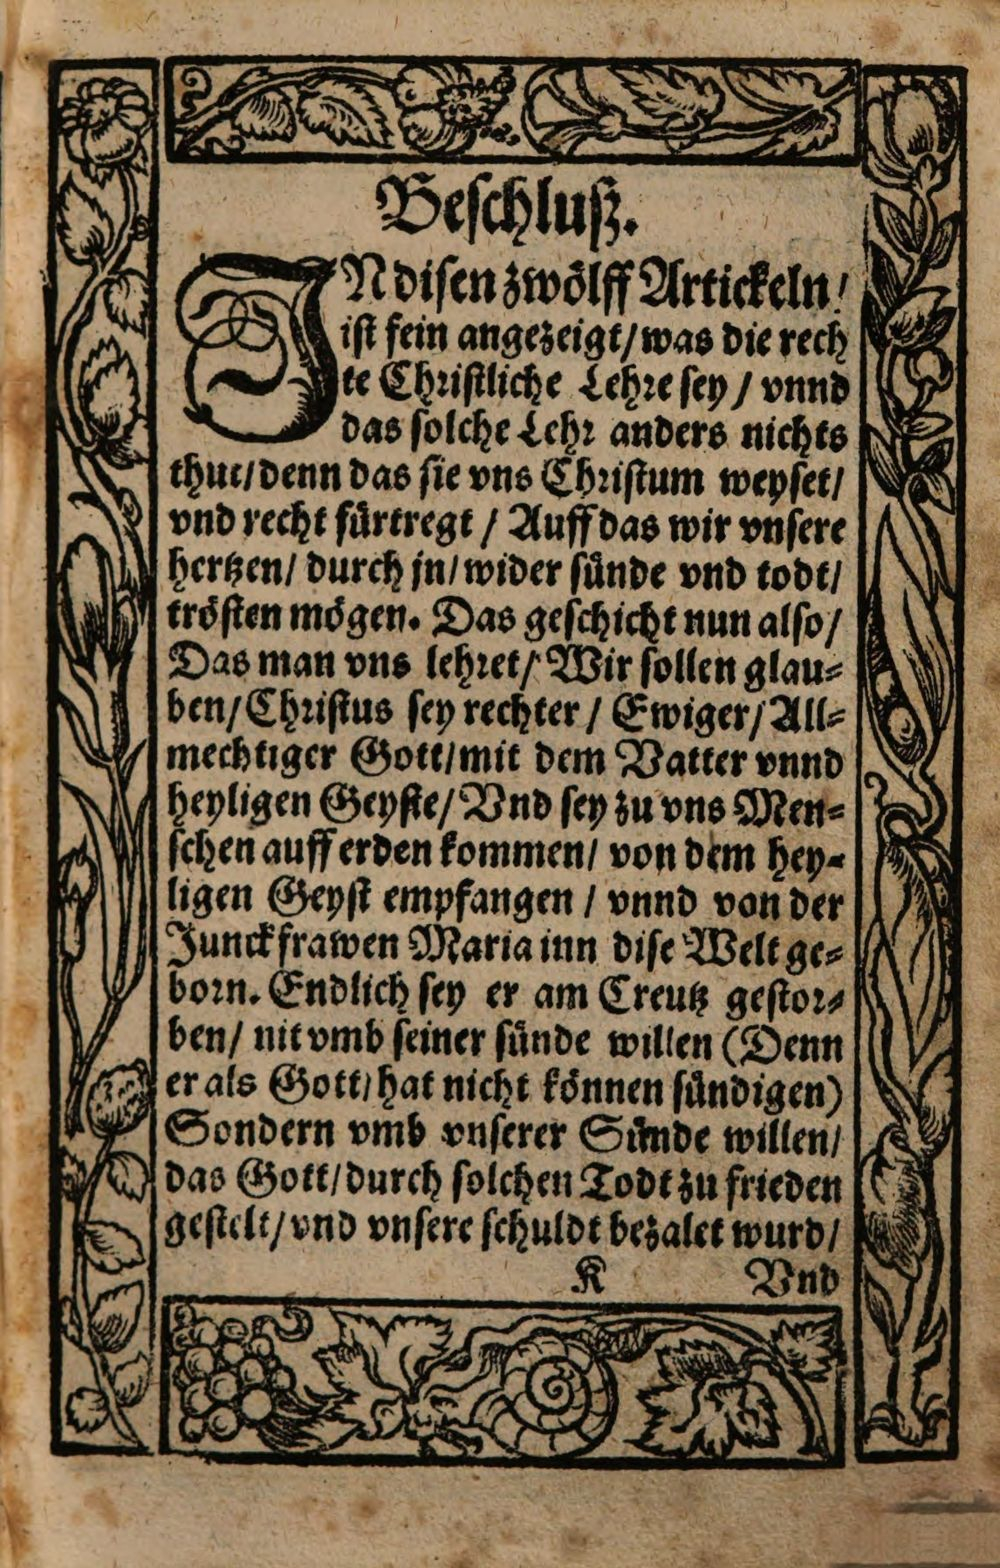 Beſchluß.
INdiſen zwoͤlff Artickeln/
iſt fein angezeigt/was die rech
te Chriſtliche Lehre ſey / vnnd
das ſolche Lehr anders nichts
thut/denn das ſie vns Chriſtum weyſet/
vnd recht fuͤrtregt / Auff das wir vnſere
hertzen/ durch jn/ wider ſuͤnde vnd todt/
troͤſten moͤgen. Das geſchicht nun alſo/
Das man vns lehret/ Wir ſollen glau⸗
ben/Chriſtus ſey rechter / Ewiger/All⸗
mechtiger Gott/mit dem Vatter vnnd
heyligen Geyſte/ Vnd ſey zu vns Men⸗
ſchen auff erden kommen/ von dem hey⸗
ligen Geyſt empfangen / vnnd von der
Junckfrawen Maria inn diſe Welt ge⸗
born. Endlich ſey er am Creutz geſtor⸗
ben/ nit vmb ſeiner ſuͤnde willen (Denn
er als Gott/ hat nicht koͤnnen ſuͤndigen)
Sondern vmb vnſerer Suͤnde willen/
das Gott/durch ſolchen Todt zu frieden
geſtelt/vnd vnſere ſchuldt bezalet wurd/
K Vnd